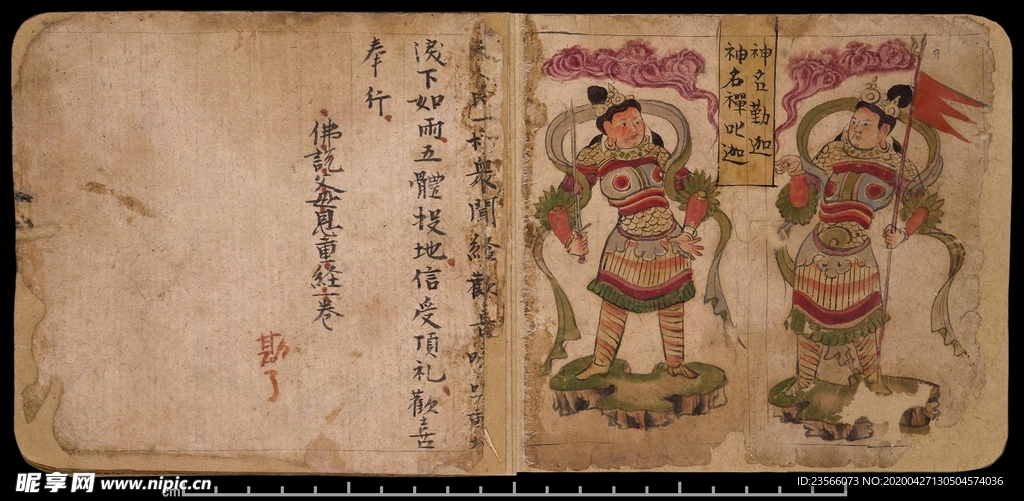 神名勤迦
神名禪叱迦
民一切衆聞経歡喜
淚下如雨五體投地信受頂礼歡喜
奉行
佛説父母恩重経一卷
勘了
昵享网 www.nipic.cn
cm
ID:23566073 NO:20200427130504574036